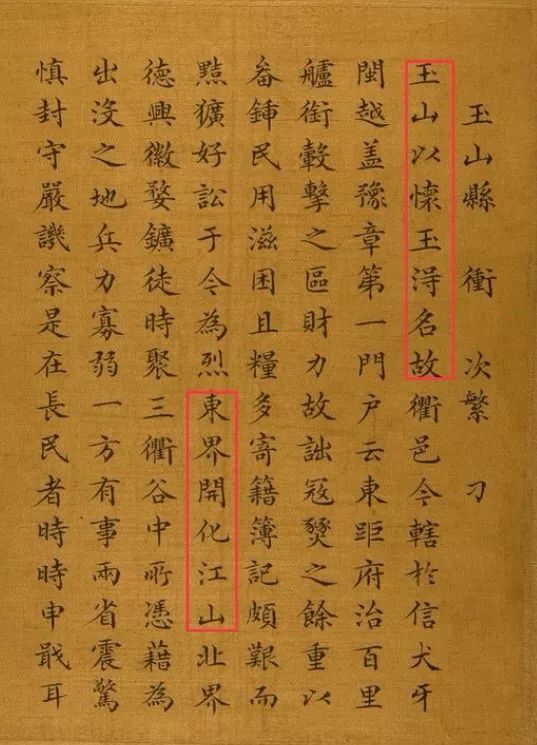 玉山縣 衝 次繁 刁
玉山以懷玉淂名故衢邑今轄於信犬牙
閩越盖豫章第一門户云東距府治百里
艫銜轂擊之區財力故詘冦燹之餘重以
畚鍤民用滋困且糧多寄籍簿記頗艱而
黠獷好訟于今為烈東界開化江山北界
德興徽婺鑛徒時聚三衢谷中所憑藉為
出沒之地兵力寡弱一方有事兩省震驚
慎封守嚴譏察是在長民者時時申戢耳